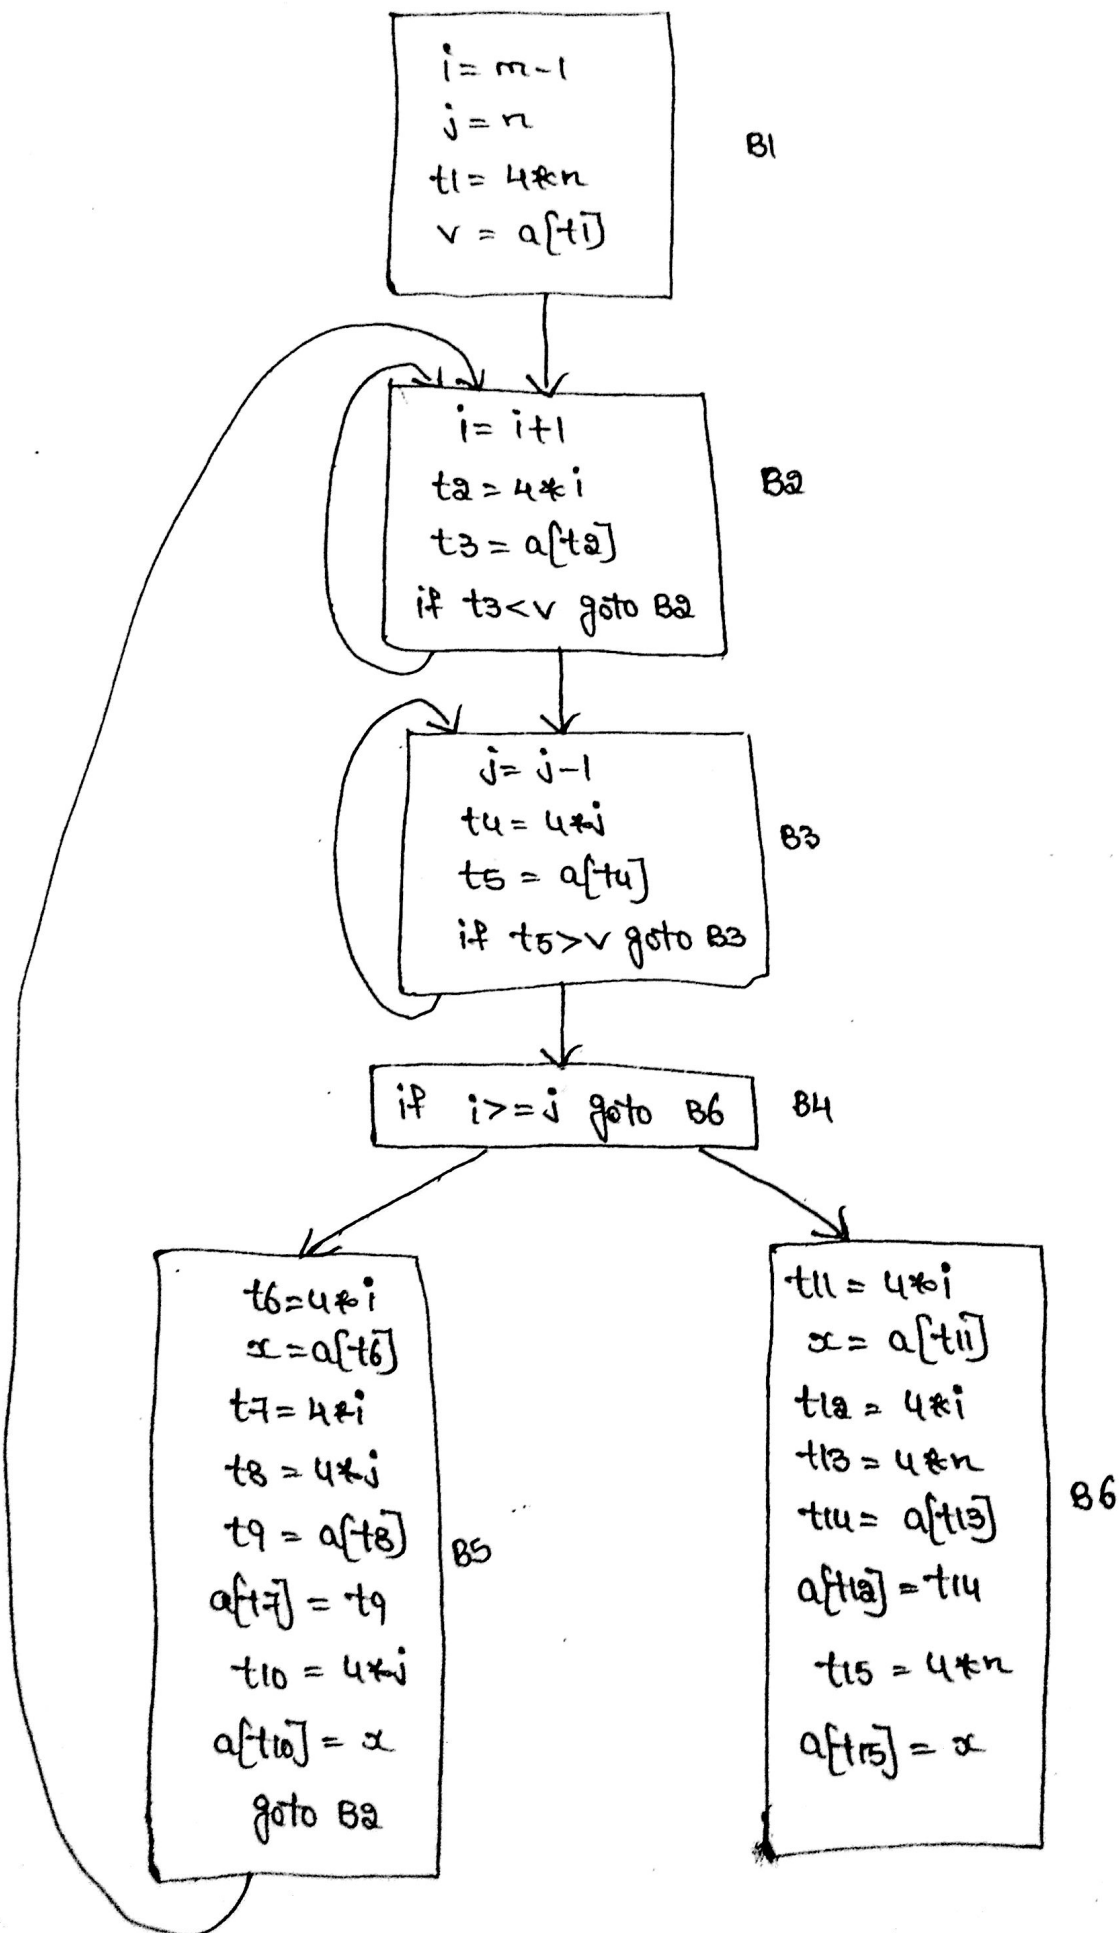 i= m-1
j=n
t1= 4*n
v = a[t1]
B1
i= i+1
t2=4*i
t3= a[t2]
if t3<v goto B2
B2
j= j-1
t4= 4*j
t5 = a[t4]
if t5>v goto B3
B3
if i>=j goto B6
B4
t6=4*i
x=a[t6]
t7=4*i
t8=4*j
t9 = a[t8]
a[t7] = t9
t10 = 4*j
a[t10] = x
goto B2
B5
t11= 4*i
x= a[t11]
t12= 4*i
t13= 4*n
t14= a[t13]
a[t12]=t14
t15 = 4*n
a[t15] = x
B6